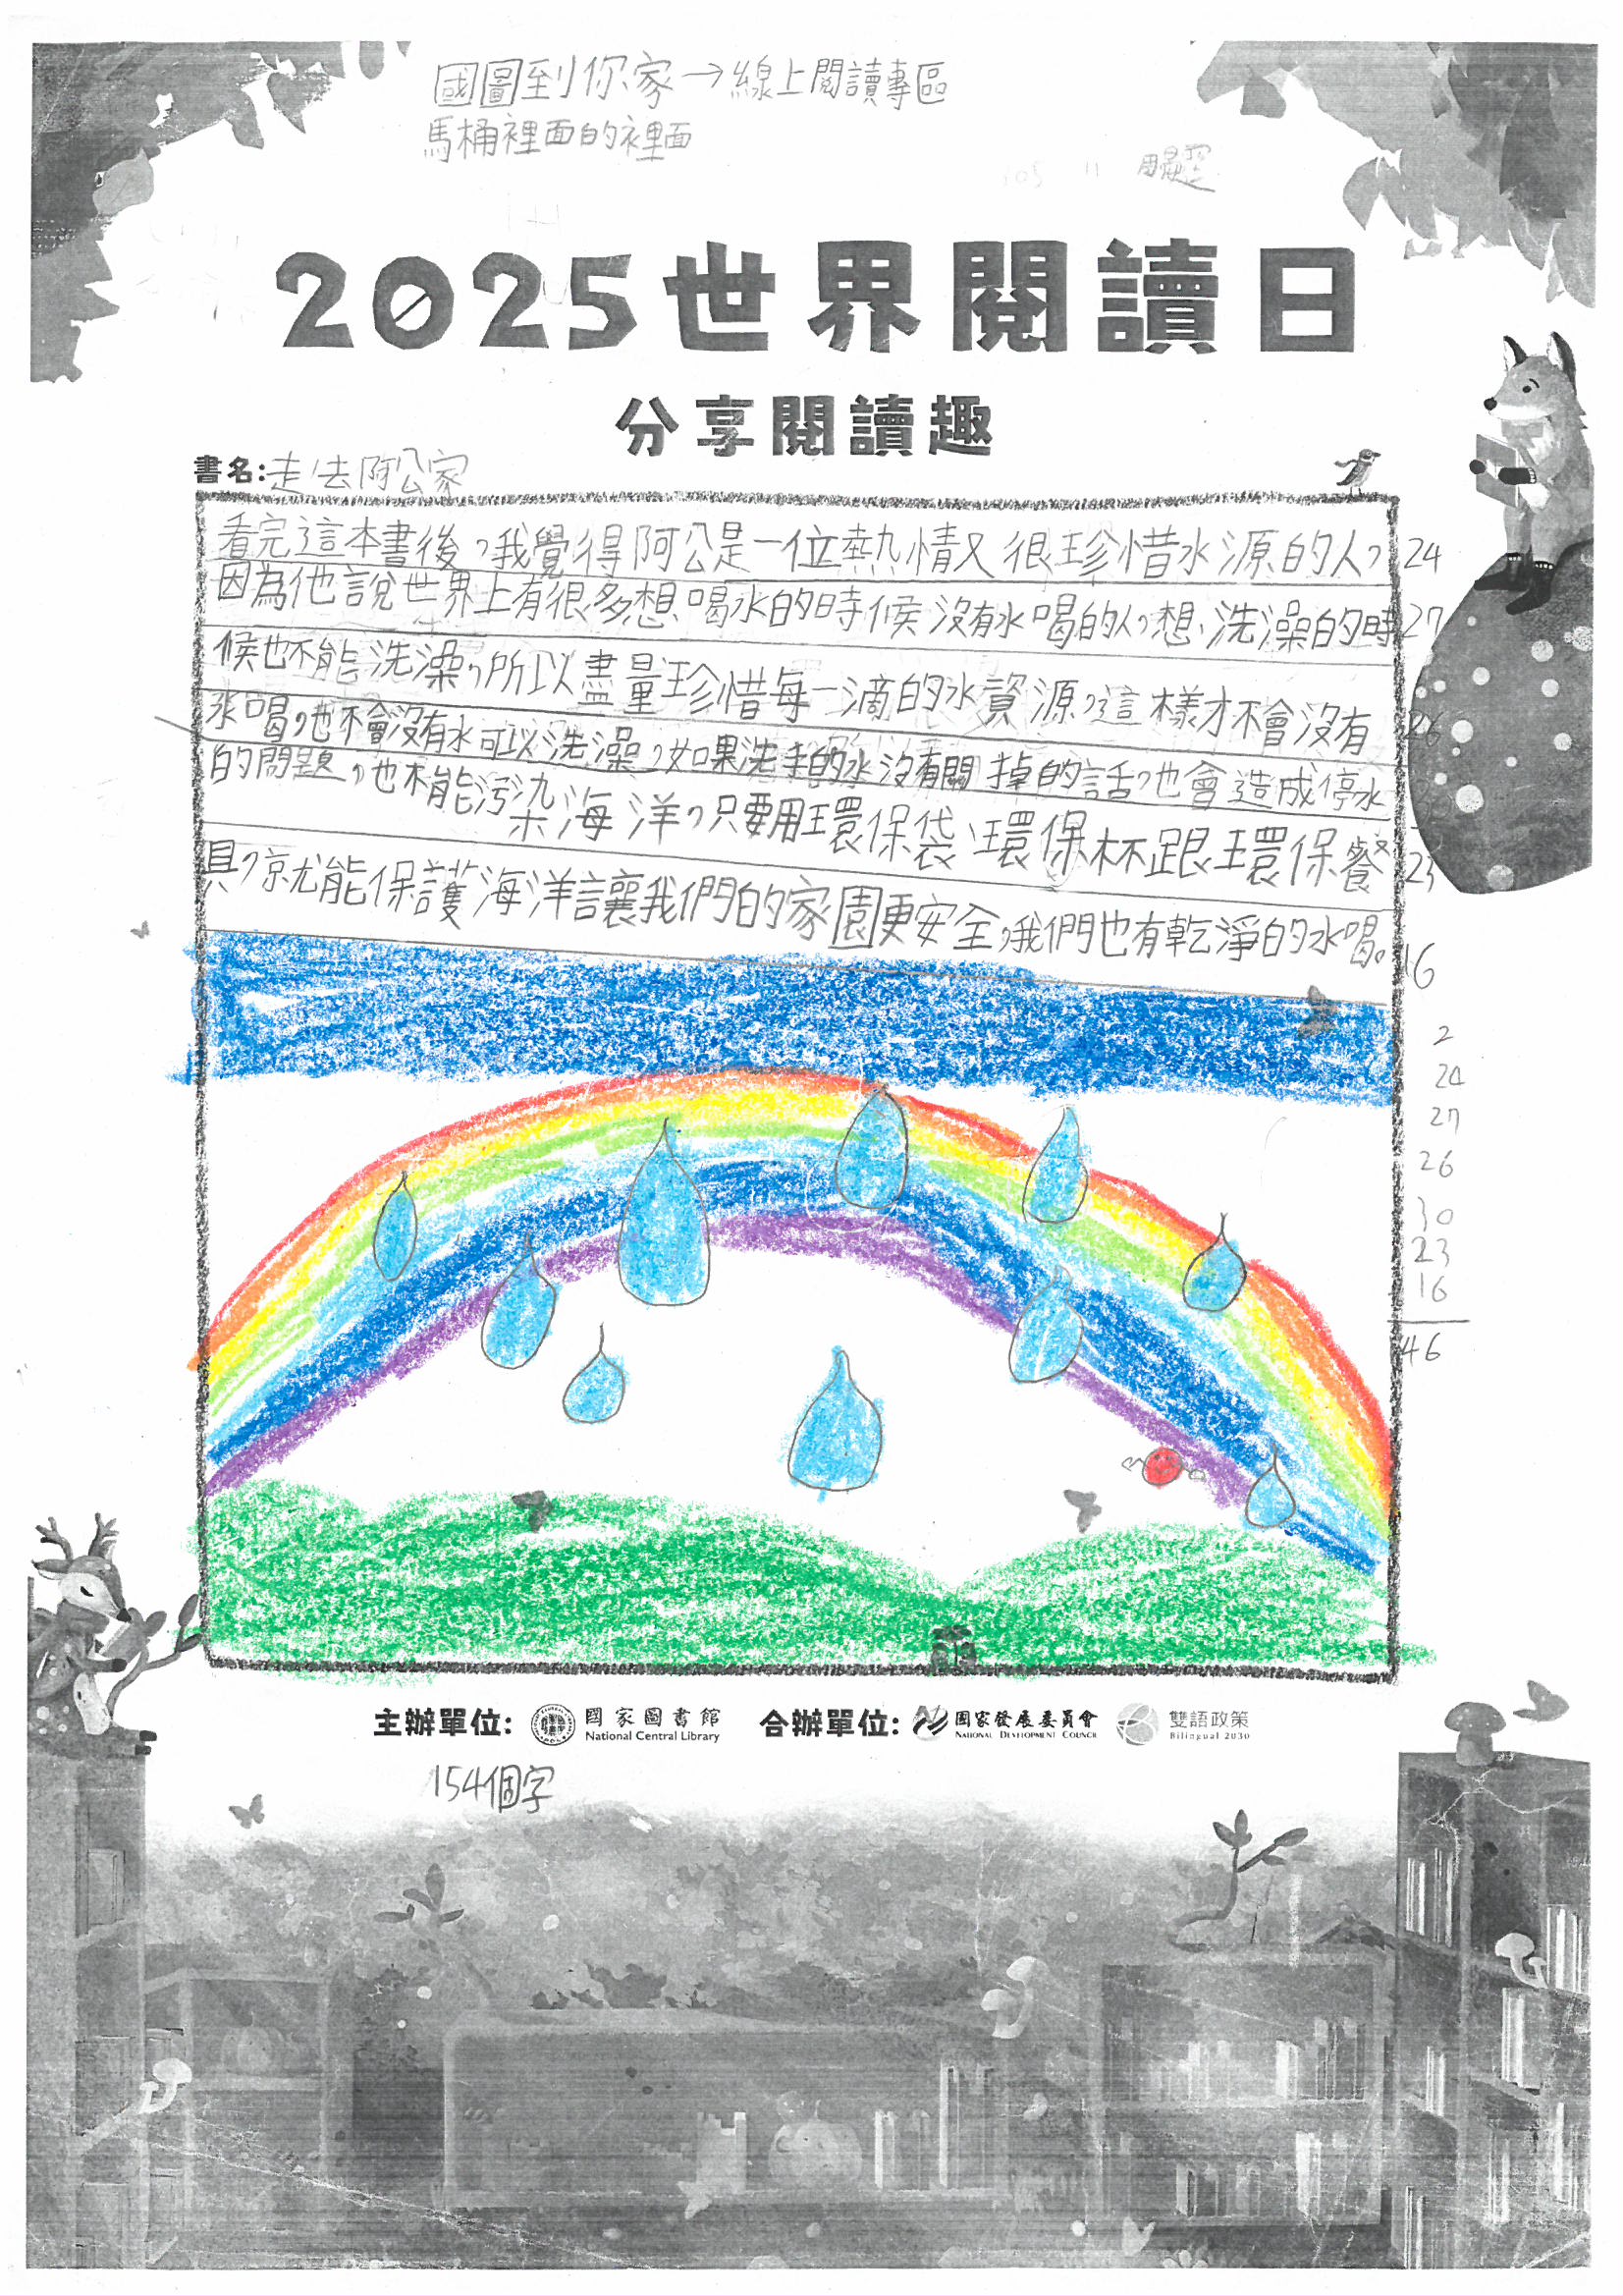 國圖到你家→線上閱讀專區
馬桶裡面的裡面
11
2025世界閱讀日
分享閱讀趣
書名:走,去阿公家
看完這本書後,我覺得阿公是一位熱情又很珍惜水源的人, 24
因為他說世界上有很多想喝水的時候沒有水喝的人,想洗澡的時 27
候也不能洗澡,所以盡量珍惜每一滴的水資源,這樣才不會沒有 26
水喝,也不會沒有水可以洗澡,如果洗手的水沒有關掉的話,也會造成停水
的問題,也不能污染海洋,只要用環保袋、環保杯跟環保餐 23
具,就能保護海洋讓我們的家園更安全,我們也有乾淨的水喝。 16
2
24
27
26
30
23
16
46
主辦單位: 國家圖書館 National Central Library 合辦單位: 國家發展委員會 NATIONAL DEVELOPMENT COUNCIL 雙語政策 Bilingual 2030
154個字